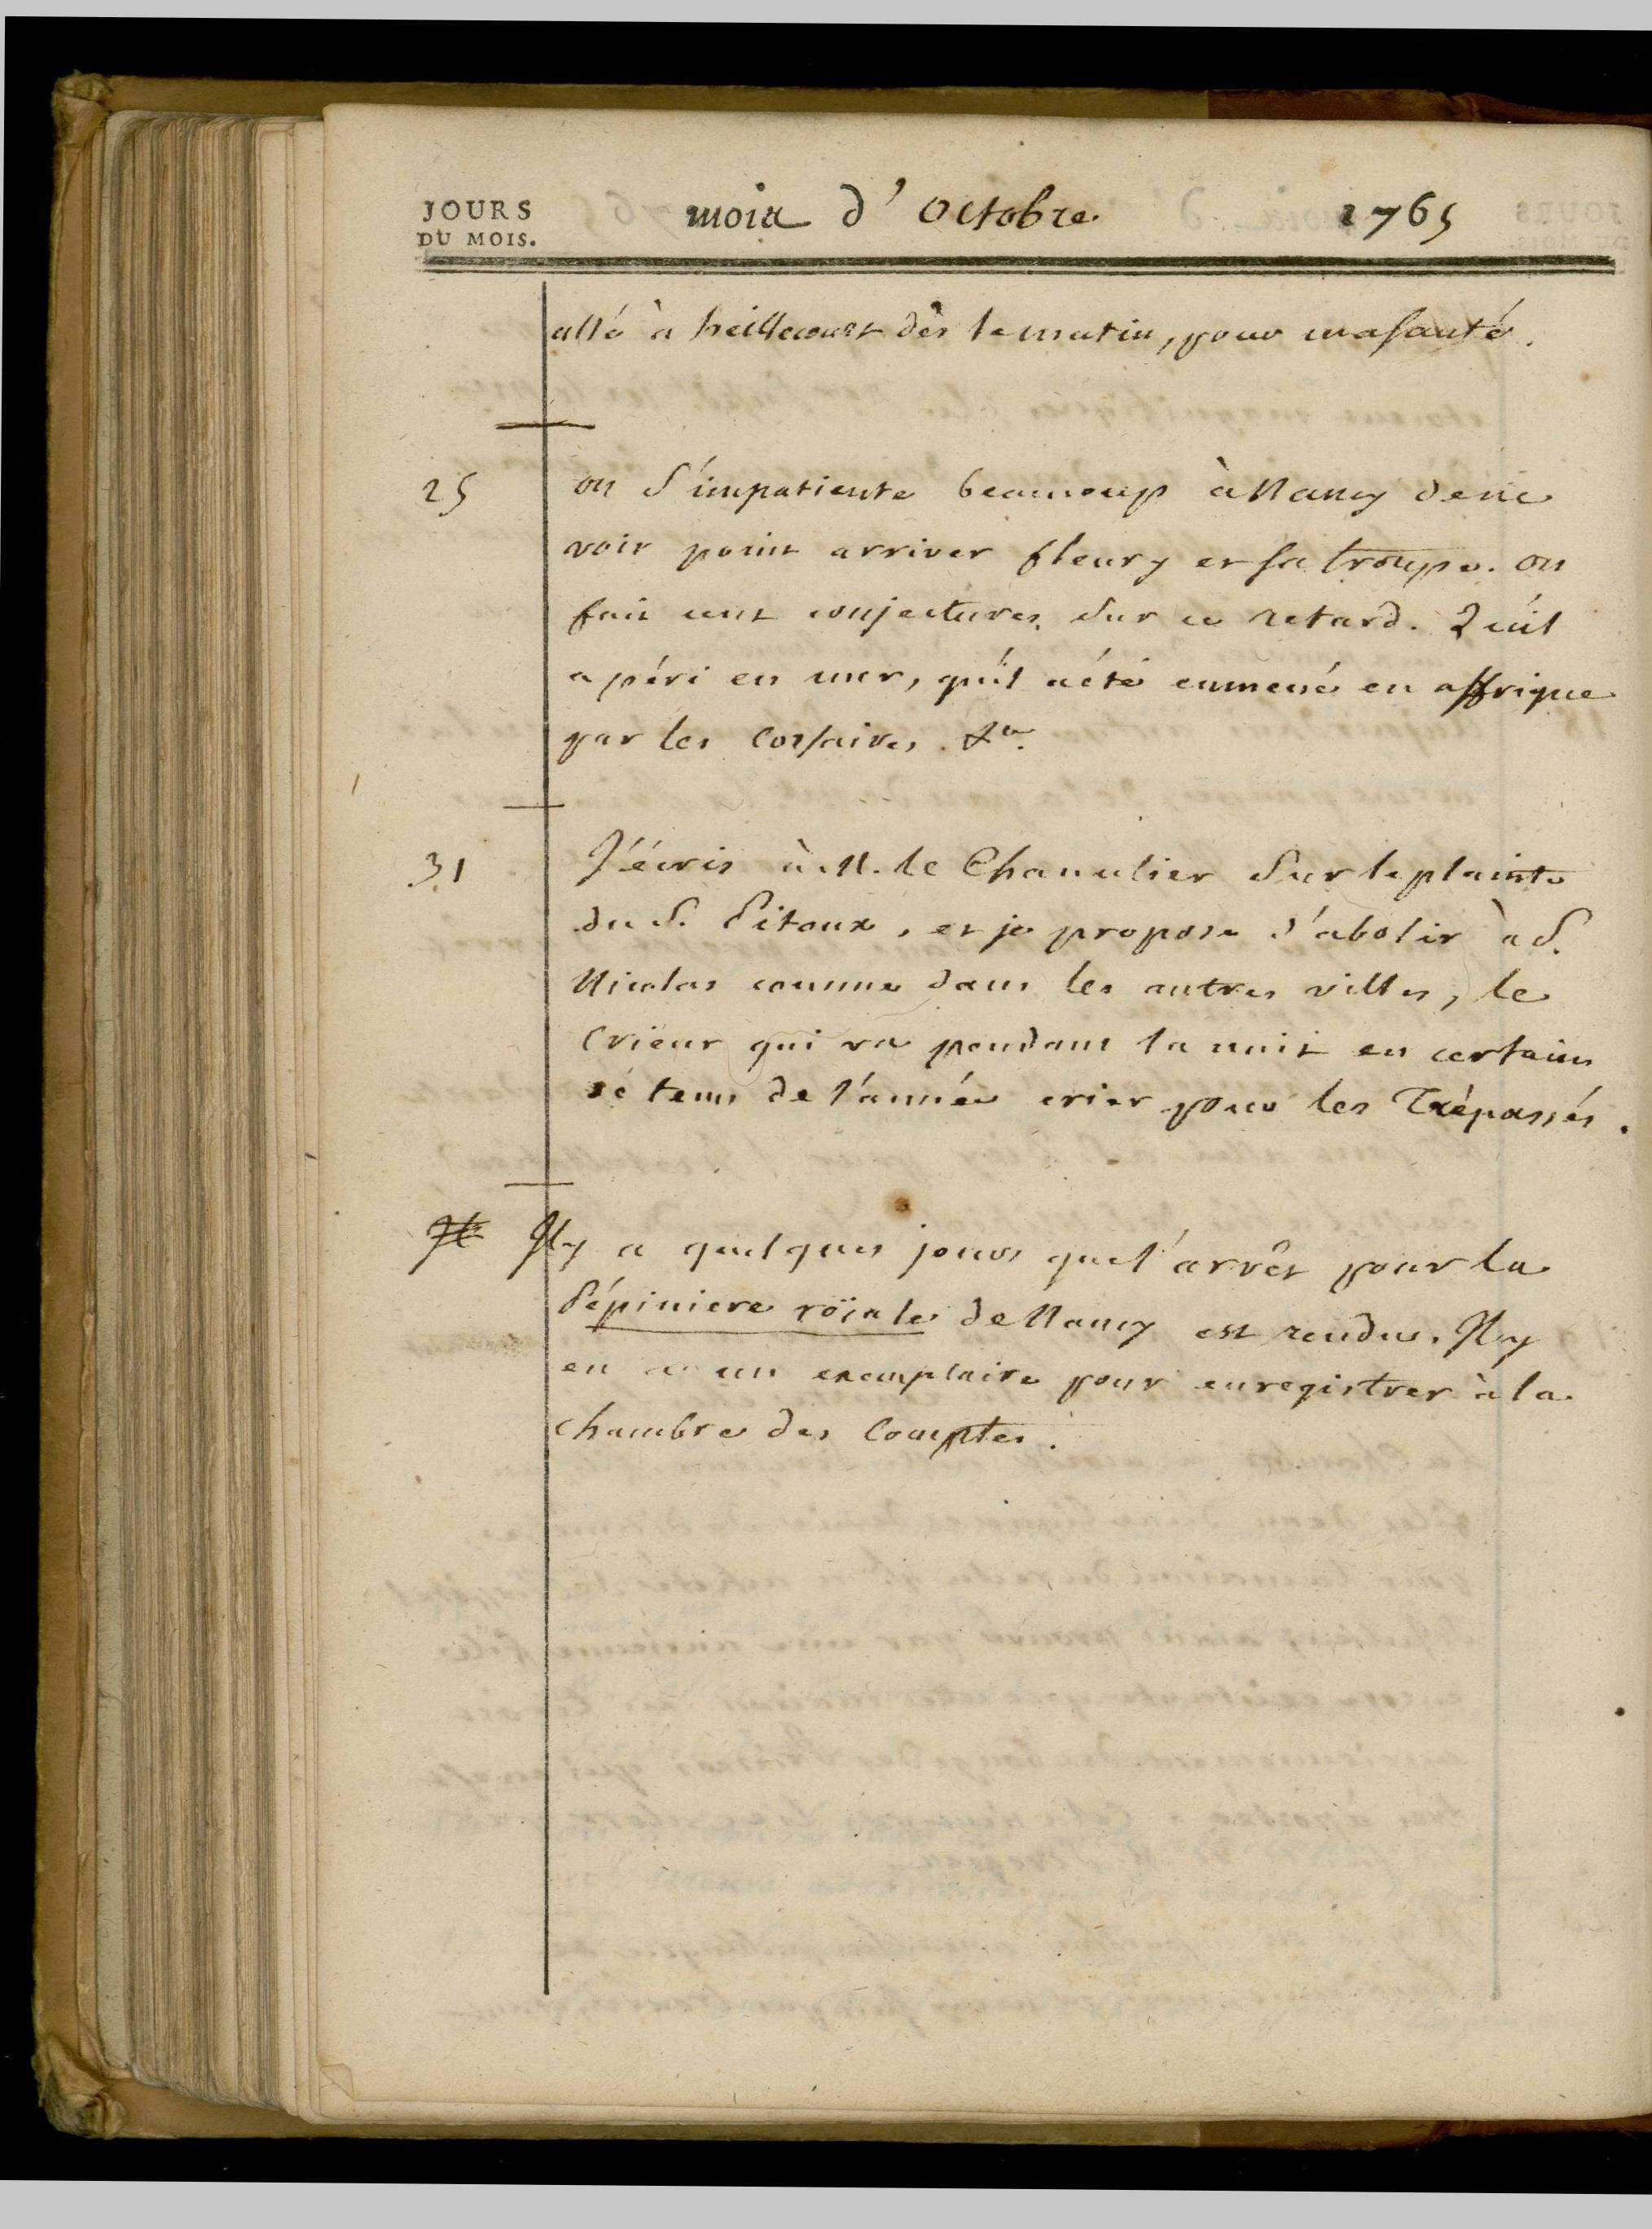 JOURS
DU MOIS.
mois d'Octobre 1765
allé à heillecourt dès le matin, pour ma santé.
25 on s'impatiente beaucoup à Nancy de ne
voir point arriver fleury et sa troupe. on
fait cent conjectures sur ce retard. Qu'il
a péri en mer, qu'il a été emmené en affrique
par les corsaires &a.
31 J'écris à M. le Chancelier sur la plainte
du S. Pitoux, et je propose d'abolir à S.
Nicolas comme dans les autres villes, le
crieur qui va pendant la nuit en certains
tems de l'année crier pour les Trépassés.
Il y a quelques jours que l'arrêt pour la
Pépiniere roïale de Nancy est rendu. Il y
en a un exemplaire pour enregistrer à la
chambre des Comptes.